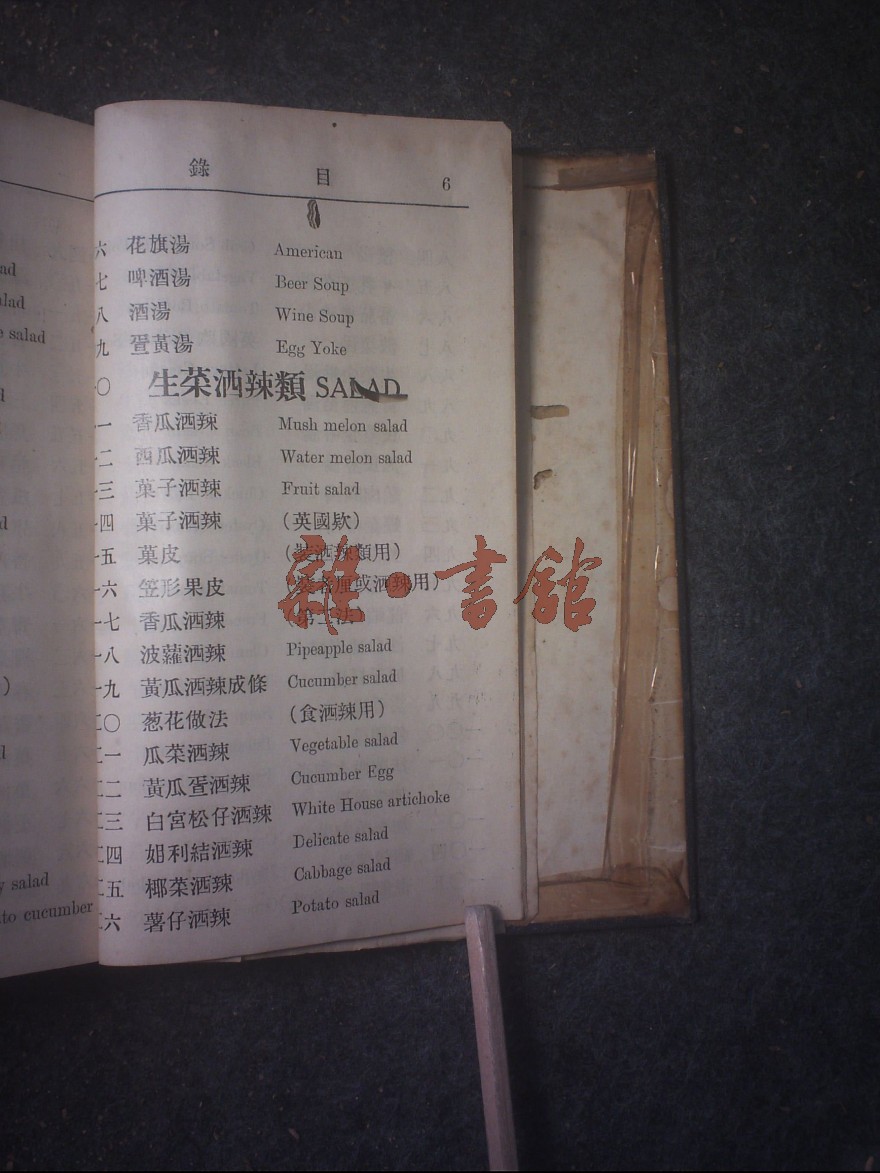 ad
alad
e salad
d
d
d
)
d
d
y salad
to cucumber
錄 目 6
六 花旗湯 American
七 啤酒湯 Beer Soup
八 酒湯 Wine Soup
九 疍黃湯 Egg Yoke
〇 生菜洒辣類 SALAD
一 香瓜洒辣 Mush melon salad
二 西瓜洒辣 Water melon salad
三 菓子洒辣 Fruit salad
四 菓子洒辣 (英國欵)
五 菓皮 (裝洒辣類用)
六 笠形果皮 (裝 厘或洒辣用)
七 香瓜洒辣 (第二法)
八 波蘿洒辣 Pipeapple salad
九 黃瓜洒辣成條 Cucumber salad
〇 葱花做法 (食洒辣用)
一 瓜菜洒辣 Vegetable salad
二 黃瓜疍洒辣 Cucumber Egg
三 白宮松仔洒辣 White House artichoke
四 姐利結洒辣 Delicate salad
五 椰菜洒辣 Cabbage salad
六 薯仔洒辣 Potato salad
雜·書館